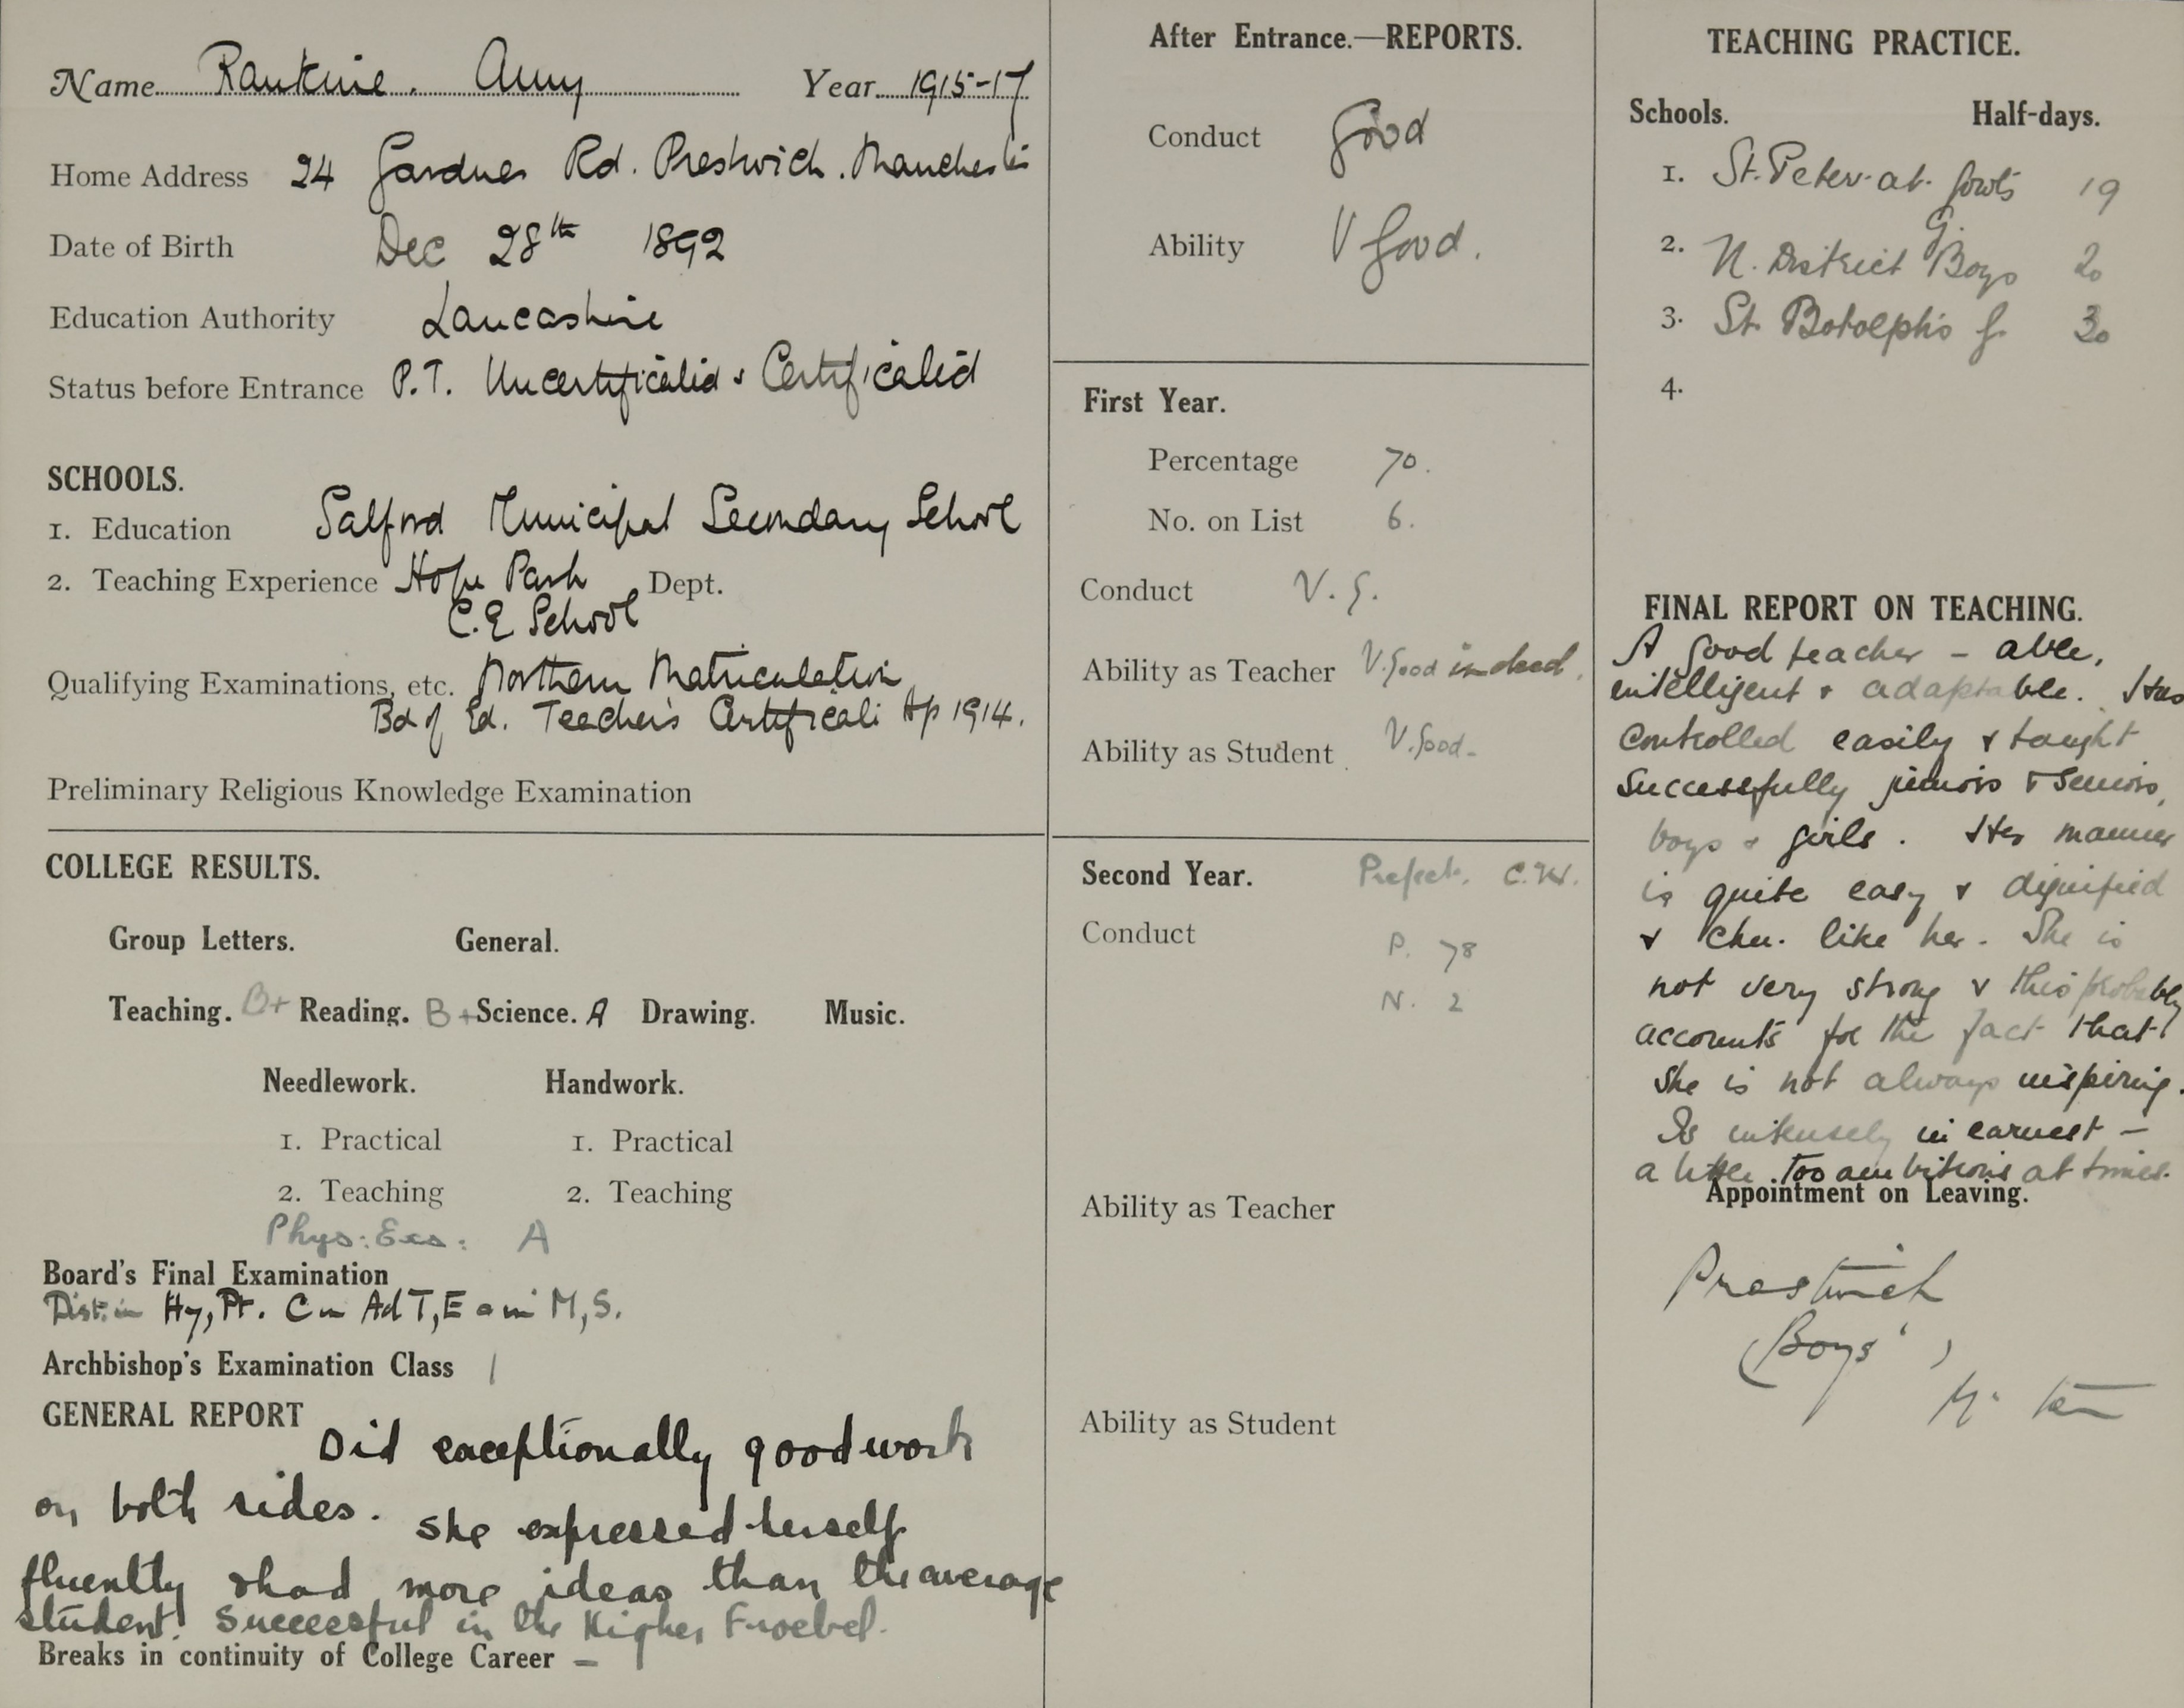 Name Rankine. Amy Year 1915-17
Home Address 24 Gardner Rd. Prestwich. Manchester
Date of Birth Dec 28th 1892
Education Authority Lancashire
Status before Entrance P.T. Uncertificated & Certificated
SCHOOLS.
1. Education Salford Municipal Secondary School
2. Teaching Experience Hope Park Dept.
C.E School
Qualifying Examinations, etc. Northern Matriculation
Bd of Ed. Teacher's Certificate Ap 1914.
Preliminary Religious Knowledge Examination
COLLEGE RESULTS.
Group Letters. General.
Teaching. B+ Reading. B+ Science. A Drawing. Music.
Needlework. Handwork.
1. Practical 1. Practical
2. Teaching 2. Teaching
Phys: Exs: A
Board's Final Examination
Dist. in Hy, Pt. C in Ad T, E M, S.
Archbishop's Examination Class 1
GENERAL REPORT Did exceptionally good work
on both sides. She expressed herself
fluently & had more ideas than the average
student. Successful in the Higher Froebel.
Breaks in continuity of College Career –
After Entrance.—REPORTS.
Conduct Good
Ability V Good.
First Year.
Percentage 70.
No. on List 6.
Conduct V. G.
Ability as Teacher V. Good indeed.
Ability as Student V. Good-
Second Year. Prefect. C.W.
Conduct P. 78
N. 2
Ability as Teacher
Ability as Student
TEACHING PRACTICE.
Schools. Half-days.
1. St. Peter-at-Gowts 19
2. N. District G. Boys 20
3. St. Botolph's G. 30
4.
FINAL REPORT ON TEACHING.
A good teacher – able,
intelligent & adaptable. Has
controlled easily & taught
successfully juniors & seniors,
boys & girls. Her manner
is quite easy & dignified
& chn. like her. She is
not very strong & this probably
accounts for the fact that
she is not always inspiring.
Is intensely in earnest –
a little too ambitious at times.
Appointment on Leaving.
Prestwich
(Boys')